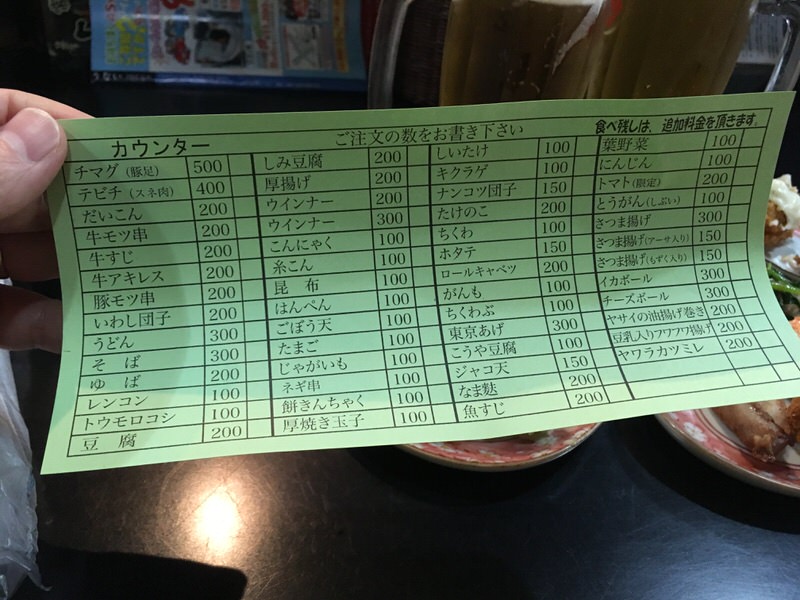 カウンター
ご注文の数をお書き下さい
食べ残しは、追加料金を頂きます。
チマグ（豚足） 500
テビチ（スネ肉） 400
だいこん 200
牛モツ串 200
牛すじ 200
牛アキレス 200
豚モツ串 200
いわし団子 200
うどん 300
そ ば 300
ゆ ば 200
レンコン 100
トウモロコシ 100
豆 腐 200
しみ豆腐 200
厚揚げ 200
ウインナー 200
ウインナー 300
こんにゃく 100
糸こん 100
昆 布 100
はんぺん 100
ごぼう天 100
たまご 100
じゃがいも 100
ネギ串 100
餅きんちゃく 100
厚焼き玉子 100
しいたけ 100
キクラゲ 100
ナンコツ団子 150
たけのこ 200
ちくわ 100
ホタテ 150
ロールキャベツ 200
がんも 100
ちくわぶ 100
東京あげ 300
こうや豆腐 100
ジャコ天 150
なま麩 200
魚すじ 200
葉野菜 100
にんじん 100
トマト（限定） 200
とうがん（しぶい） 100
さつま揚げ 300
さつま揚げ（アーサ入り） 150
さつま揚げ（もずく入り） 150
イカボール 300
チーズボール 300
ヤサイの油揚げ巻き 200
豆乳入りフワフワ揚げ 200
ヤワラカツミレ 200